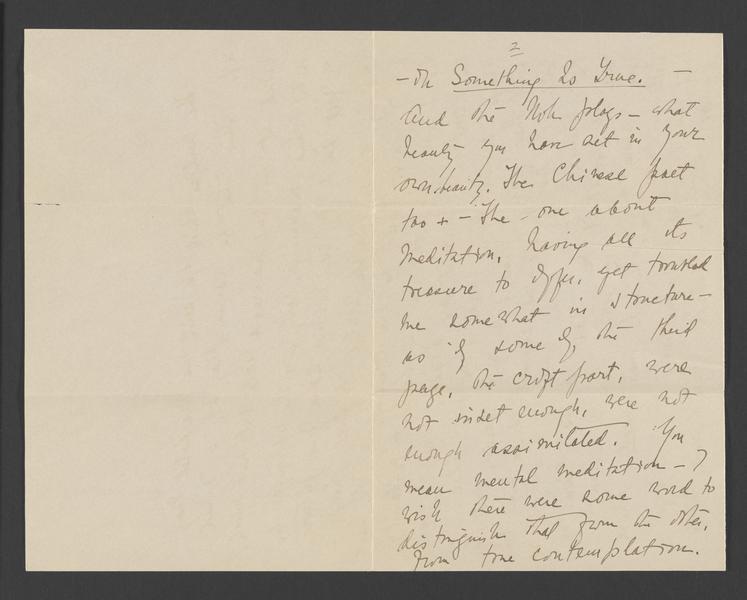 2
- in Something Is True. -
And the Noh plays - what
beauty you have set in your
own beauty. The Chinese poet
too + - The one about
Meditation, having all its
treasure to offer, yet troubled
me somewhat in structure -
as if some of the third
page, the craft part, were
not inset enough, were not
enough assimilated. You
mean mental meditation - I
wish there were some word to
distinguish that from the other,
from true contemplation.